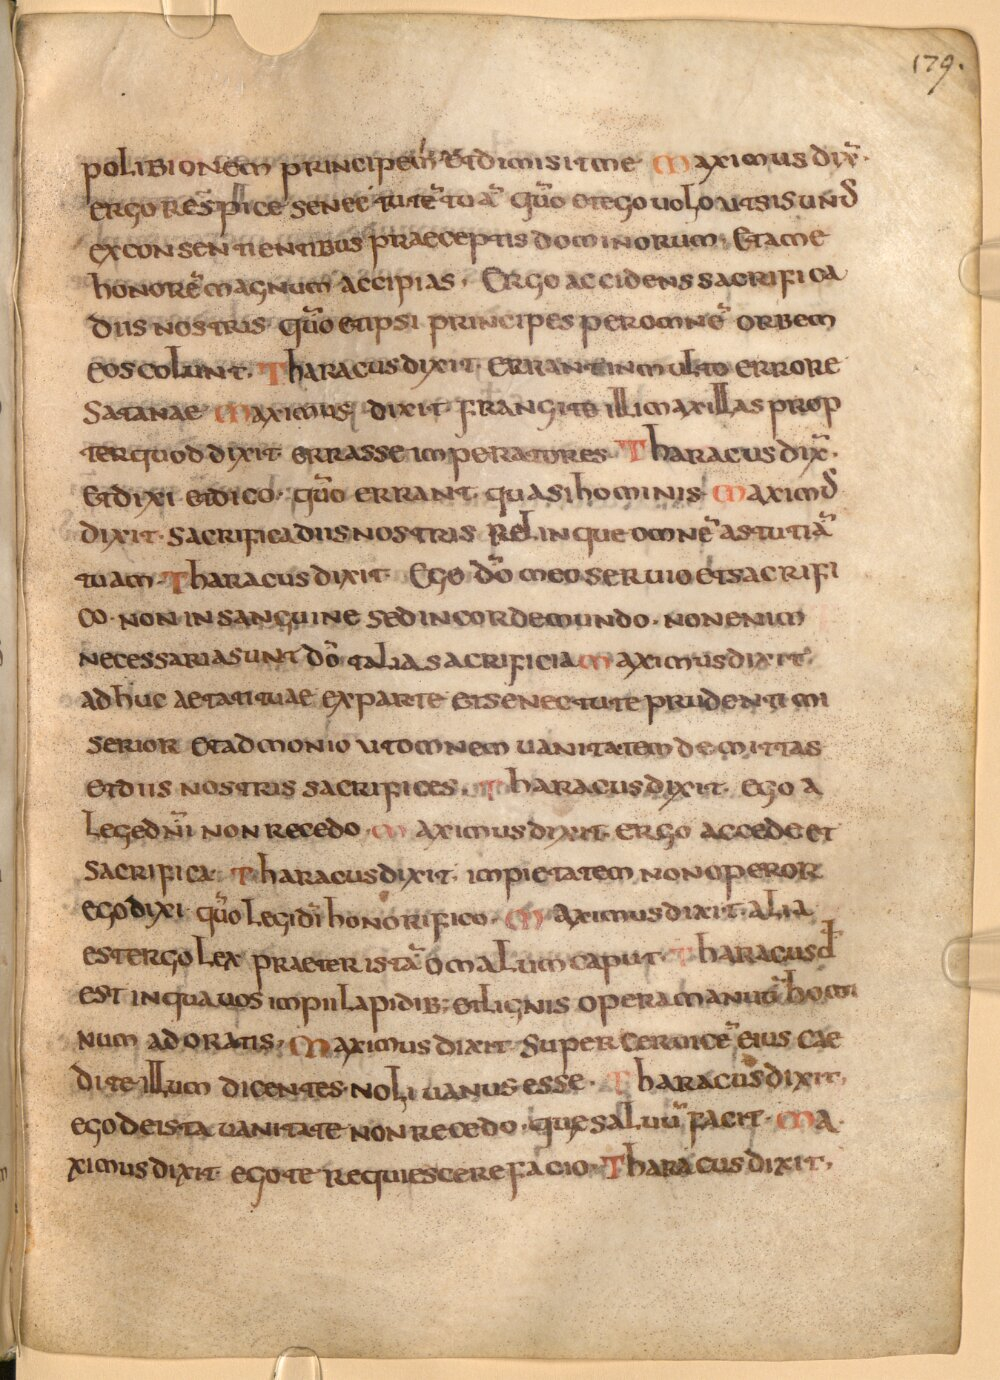 179.
poliBionem principem et dimisit me. Maximus dix̄.
ergo respice senectutē tuā quō et ego uolo ut sis und
ex consentientibus praeceptis dominorum. Et a me
honorē magnum accipias. Ergo accidens sacrifica
diis nostris quō et ipsi principes per omnē orbem
eos colunt. Tharacus dixit. errant in multo errore
satanae. Maximus dixit. frangite illi maxillas prop
ter quod dixit errasse imperatores. Tharacus dix̄.
et dixi et dico. quō errant quasi hominis. Maximus
dixit. sacrifica diis nostris Relinque omnē astutiā
tuam. Tharacus dixit. Ego dō meo seruio et sacrifi
co. non in sanguine sed in corde mundo. non enim
necessaria sunt dō talia sacrificia. Maximus dixit.
ad huc aetati tuae ex parte et senectute prudenti mi
serior et admonio ut omnem uanitatem demittas
et diis nostris sacrifices. Tharacus dixit. ego a
lege dn̄i non recedo. Maximus dixit. ergo accede et
sacrifica. Tharacus dixit. impietatem non operor
ego dixi quō legi dī honorifico. Maximus dixit. alia
est ergo lex praeter istā o malum caput. Tharacus d
est in qua uos impii lapidib; et lignis opera manuū homi
num adoratis. Maximus dixit. Super ceruicē eius cae
dite illum dicentes. noli uanus esse. Tharacus dixit.
ego de ista uanitate non recedo. que saluū facit. Ma
ximus dixit. ego te requiescere facio. Tharacus dixit.